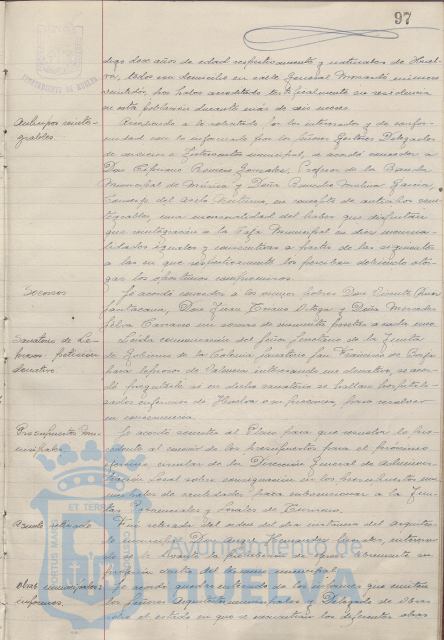 97
AYUNTAMIENTO DE HUELVA
diez doce años de edad respectivamente y naturales de Huel-
va, todos con domicilio en calle General Mosc número
han acreditado su residencia
en esta población durante más de seis meses.
Anticipos reinte-
grables.
Accediendo a lo solicitado por los interesados y de confor-
midad con lo informado por los Señores Gestores Delegados
de servicios e Interventor municipal, se acordó conceder a
Don Cipriano Romero González, Profesor de la Banda
Municipal de Música y Doña Remedios Molina García,
Conserje del Asilo Nocturno, en concepto de anticipos rein-
tegrables, una mensualidad del haber que disfrutan
que reintegrarán a la Caja Municipal en diez mensua-
lidades iguales y consecutivas a partir de las siguientes
a las en que respectivamente los perciban debiendo otor-
gar los oportunos compromisos.
Socorros
Se acordó conceder a los pobres Don Vicente
Don Juan Ortega y Doña Mercedes
Silva Carrasco un socorro de pesetas a cada uno.
Sanatorio de Le-
prosos: petición
donativo
Leída comunicación del Señor Secretario de la Junta
de Gobierno de la Colonia Sanatorio San Francisco de Borja
para leprosos de Valencia interesando un donativo, se acor-
dó preguntarle si en dicho sanatorio se hallan hospitali-
zados enfermos de Huelva o su provincia, para resolver
en consecuencia.
Presupuestos mu-
nicipales
Se acordó someter al Pleno para que resuelva lo pro-
cedente al de los presupuestos para el próximo
ejercicio circular de la Dirección General de Adminis-
tración Local sobre consignación en los presupuestos mu-
nicipales de cantidades para subvencionar a la Jun-
tas Provinciales y Locales de Turismo.
Asunto retirado
Fué retirada del orden del día instancia del Arquitec-
to municipal Don Angel Hernández Morales, interesan-
do se le la para libremente su
profesión dentro del término municipal.
Obras municipales:
informes.
Se acordó quedar enterado de los informes que emiten
los Señores Arquitectos municipales y Delegado de Obras
sobre el estado en que se encuentran las diferentes obras
PORTUS MARIS ET TERRAE
Ayuntamiento de
HUELVA